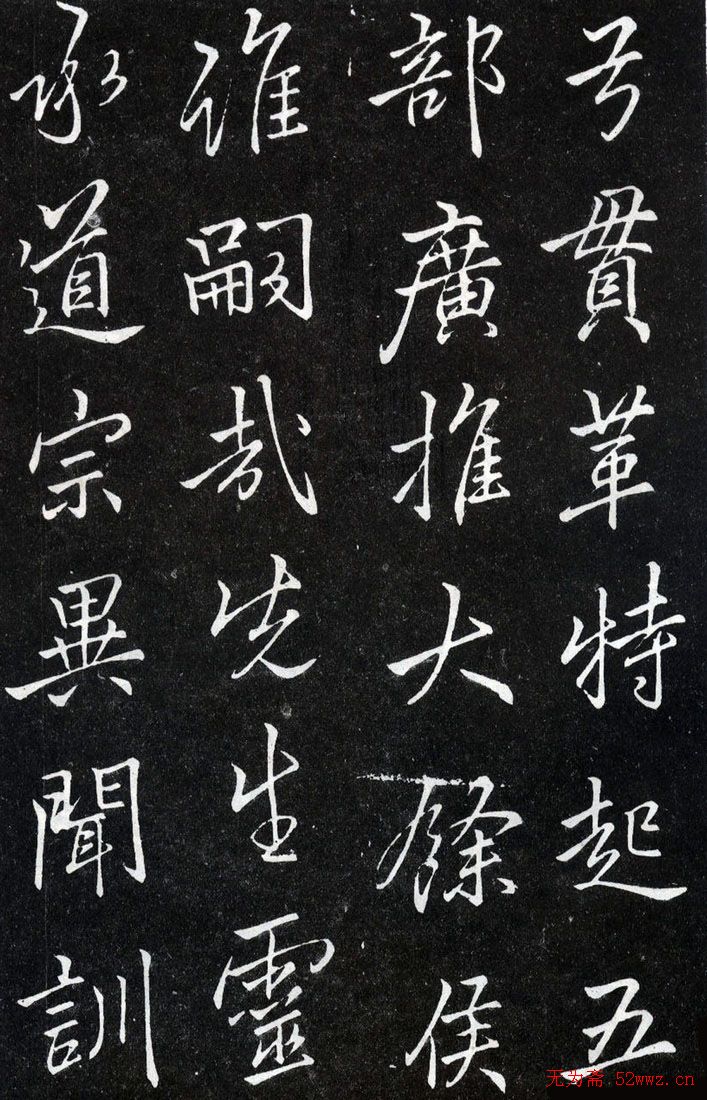 貫革特起五
部廣推大餘侯
誰嗣哉先生靈
承道宗異聞訓
无为斋.52wwz.cn